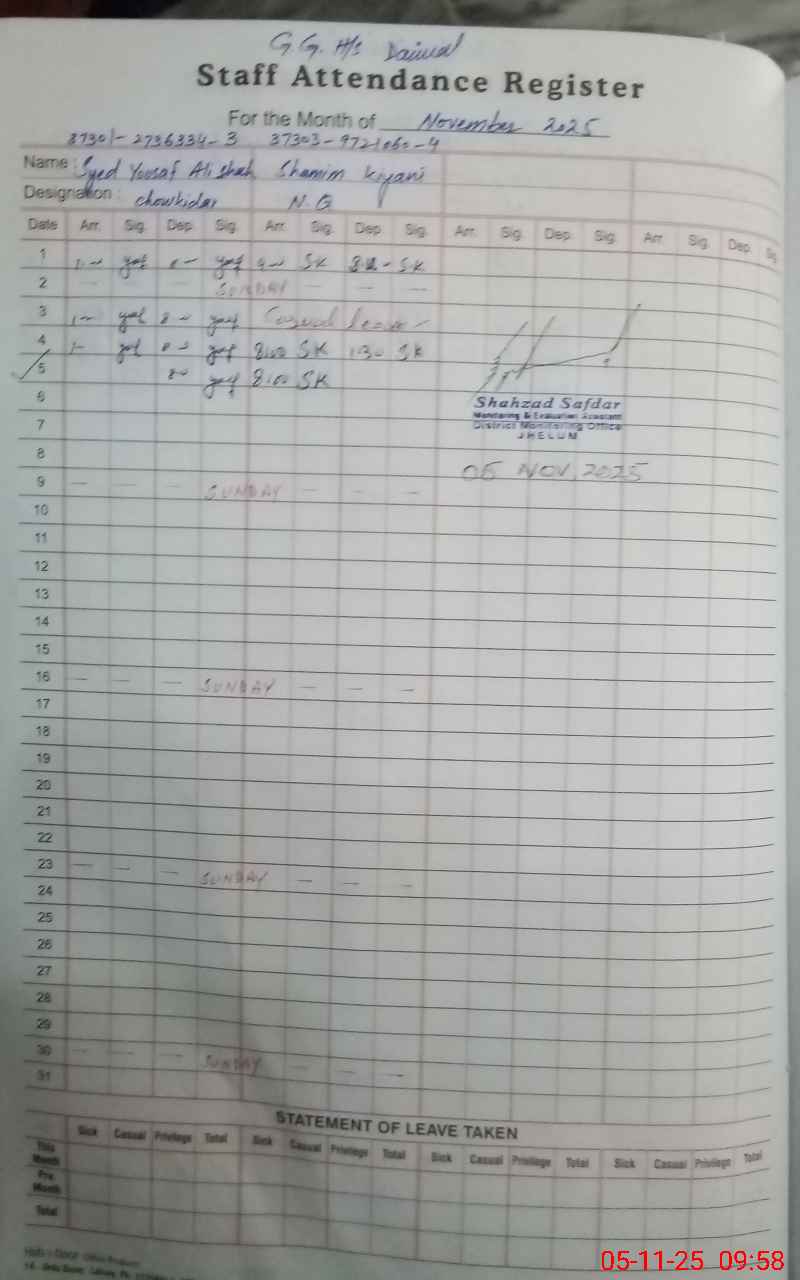 G.G. H/s Daiwal
Staff Attendance Register
For the Month of November 2025
37301-2736334-3 37303-9721060-4
Name : Syed Yousaf Ali Shah Shamim Kiyani
Designation : chowkidar N.Q
Date Arr. Sig. Dep. Sig. Arr. Sig. Dep. Sig. Arr. Sig. Dep. Sig. Arr. Sig. Dep. Sig.
1 SK SK
2 — — SUNDAY — — —
3 Casual leave
4 8:00 SK 1:30 SK
5 8:00 SK
6
7
8
9 — — — SUNDAY — — —
10
11
12
13
14
15
16 — — — SUNDAY — — —
17
18
19
20
21
22
23 — — — SUNDAY — — —
24
25
26
27
28
29
30 — — — SUNDAY — — —
31
Shahzad Safdar
Monitoring & Evaluation Assistant
District Monitoring Office
JHELUM
05 NOV, 2025
STATEMENT OF LEAVE TAKEN
Sick Casual Privilege Total Sick Casual Privilege Total Sick Casual Privilege Total Sick Casual Privilege Total
This Month
Pre Month
Total
05-11-25 09:58